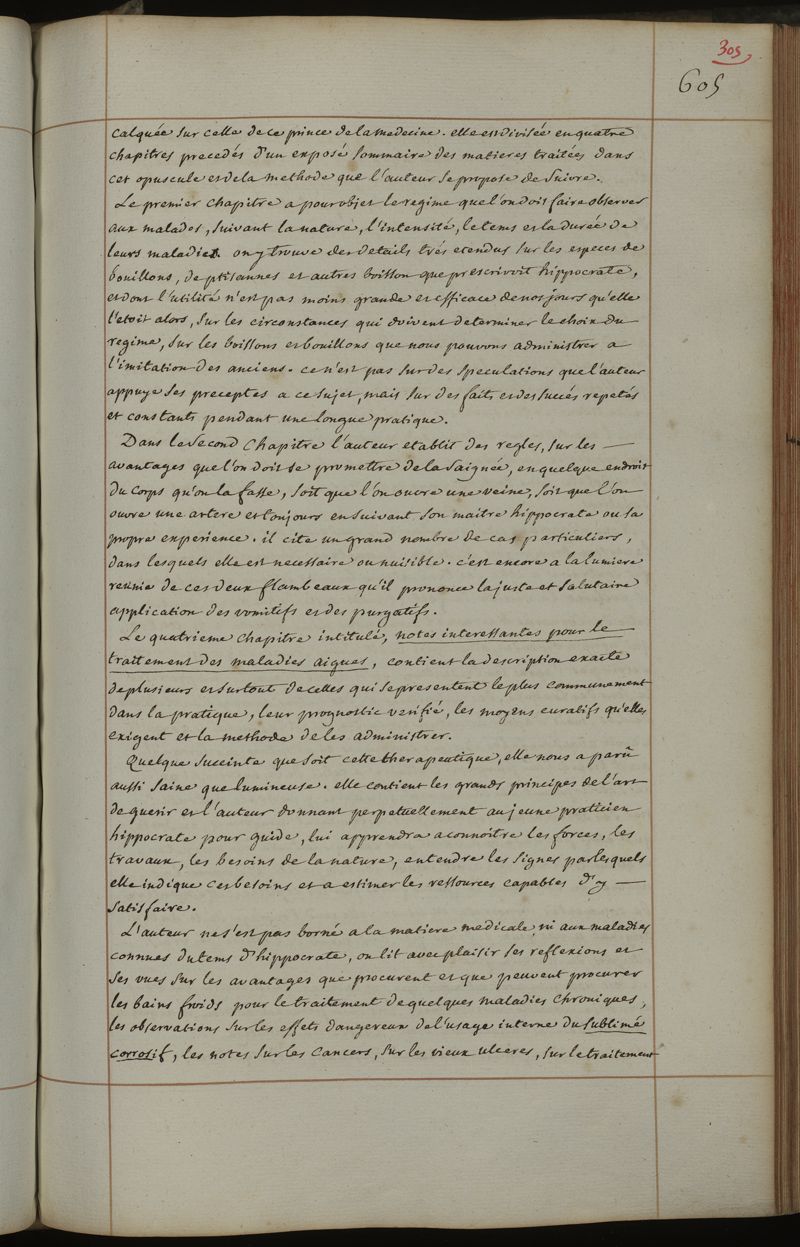 305
605
calquée sur celle de ce prince de la medecine. elle est divisée en quatre
chapitres precedés d'un exposé sommaire des matieres traitées dans
cet opuscule et de la methode que l'auteur se propose de suivre.
Le premier chapitre a pour objet le regime que l'on doit faire observer
aux malades, suivant la nature, l'intensité, le tems et la durée de
leurs maladies. on y trouve des details trés etendus sur les especes de
bouillons, de ptisannes et autres boisson que prescrivoit hippocrate,
et dont l'utilité n'est pas moins grande et efficace de nos jours qu'elle
l'etoit alors, sur les circonstances qui doivent determiner le choix du
regime, sur les boissons et bouillons que nous pouvons administrer a
l'imitation des anciens. ce n'est pas sur des speculations que l'auteur
appuye ses preceptes a ce sujet, mais sur des faits et des succés repetés
et constants pendant une longue pratique.
Dans le second chapitre l'auteur etablit des regles, sur les —
avantages que l'on doit se promettre de la saignée, en quelque endroit
du corps qu'on la fasse, soit que l'on ouvre une veine, soit que l'on
ouvre une artere et toujours en suivant son maitre hippocrate ou sa
propre experience. il cite un grand nombre de cas particuliers,
dans lesquels elle est necessaire ou nuisible. c'est encore a la lumiere
reünie de ces deux flambeaux qu'il prononce la juste et salutaire
application des vomitifs et des purgatifs.
Le quatrieme chapitre intitulé, notes interessantes pour le
traitement des maladies aigues, contient la description exacte
de plusieurs et surtout de celles qui se presentent le plus communement
dans la pratique, leur prognostic verifié, les moyens curatifs qu'elles
exigent et la methode de les administrer.
Quelque succinte que soit cette therapeutique, elle nous a parû
aussi saine que lumineuse. elle contient les grands principes de l'art
de guerir et l'auteur donnant perpetuellement au jeune praticien
hippocrate pour guide, lui apprendra a connoitre les forces, les
travaux, les besoins de la nature, entendre les signes par lesquels
elle indique ces besoins et a estimer les ressources capables d'y —
satisfaire.
L'auteur ne s'est pas borné a la matiere medicale, ni aux maladies
connues du tems d'hippocrate, on lit avec plaisir ses reflexions et
ses vues sur les avantages que procurent et que peuvent procurer
les bains froids pour le traitement de quelques maladies chroniques,
les observations sur les effets dangereux de l'usage interne du sublimé
corrosif, les notes sur les cancers, sur les vieux ulceres, sur le traitement